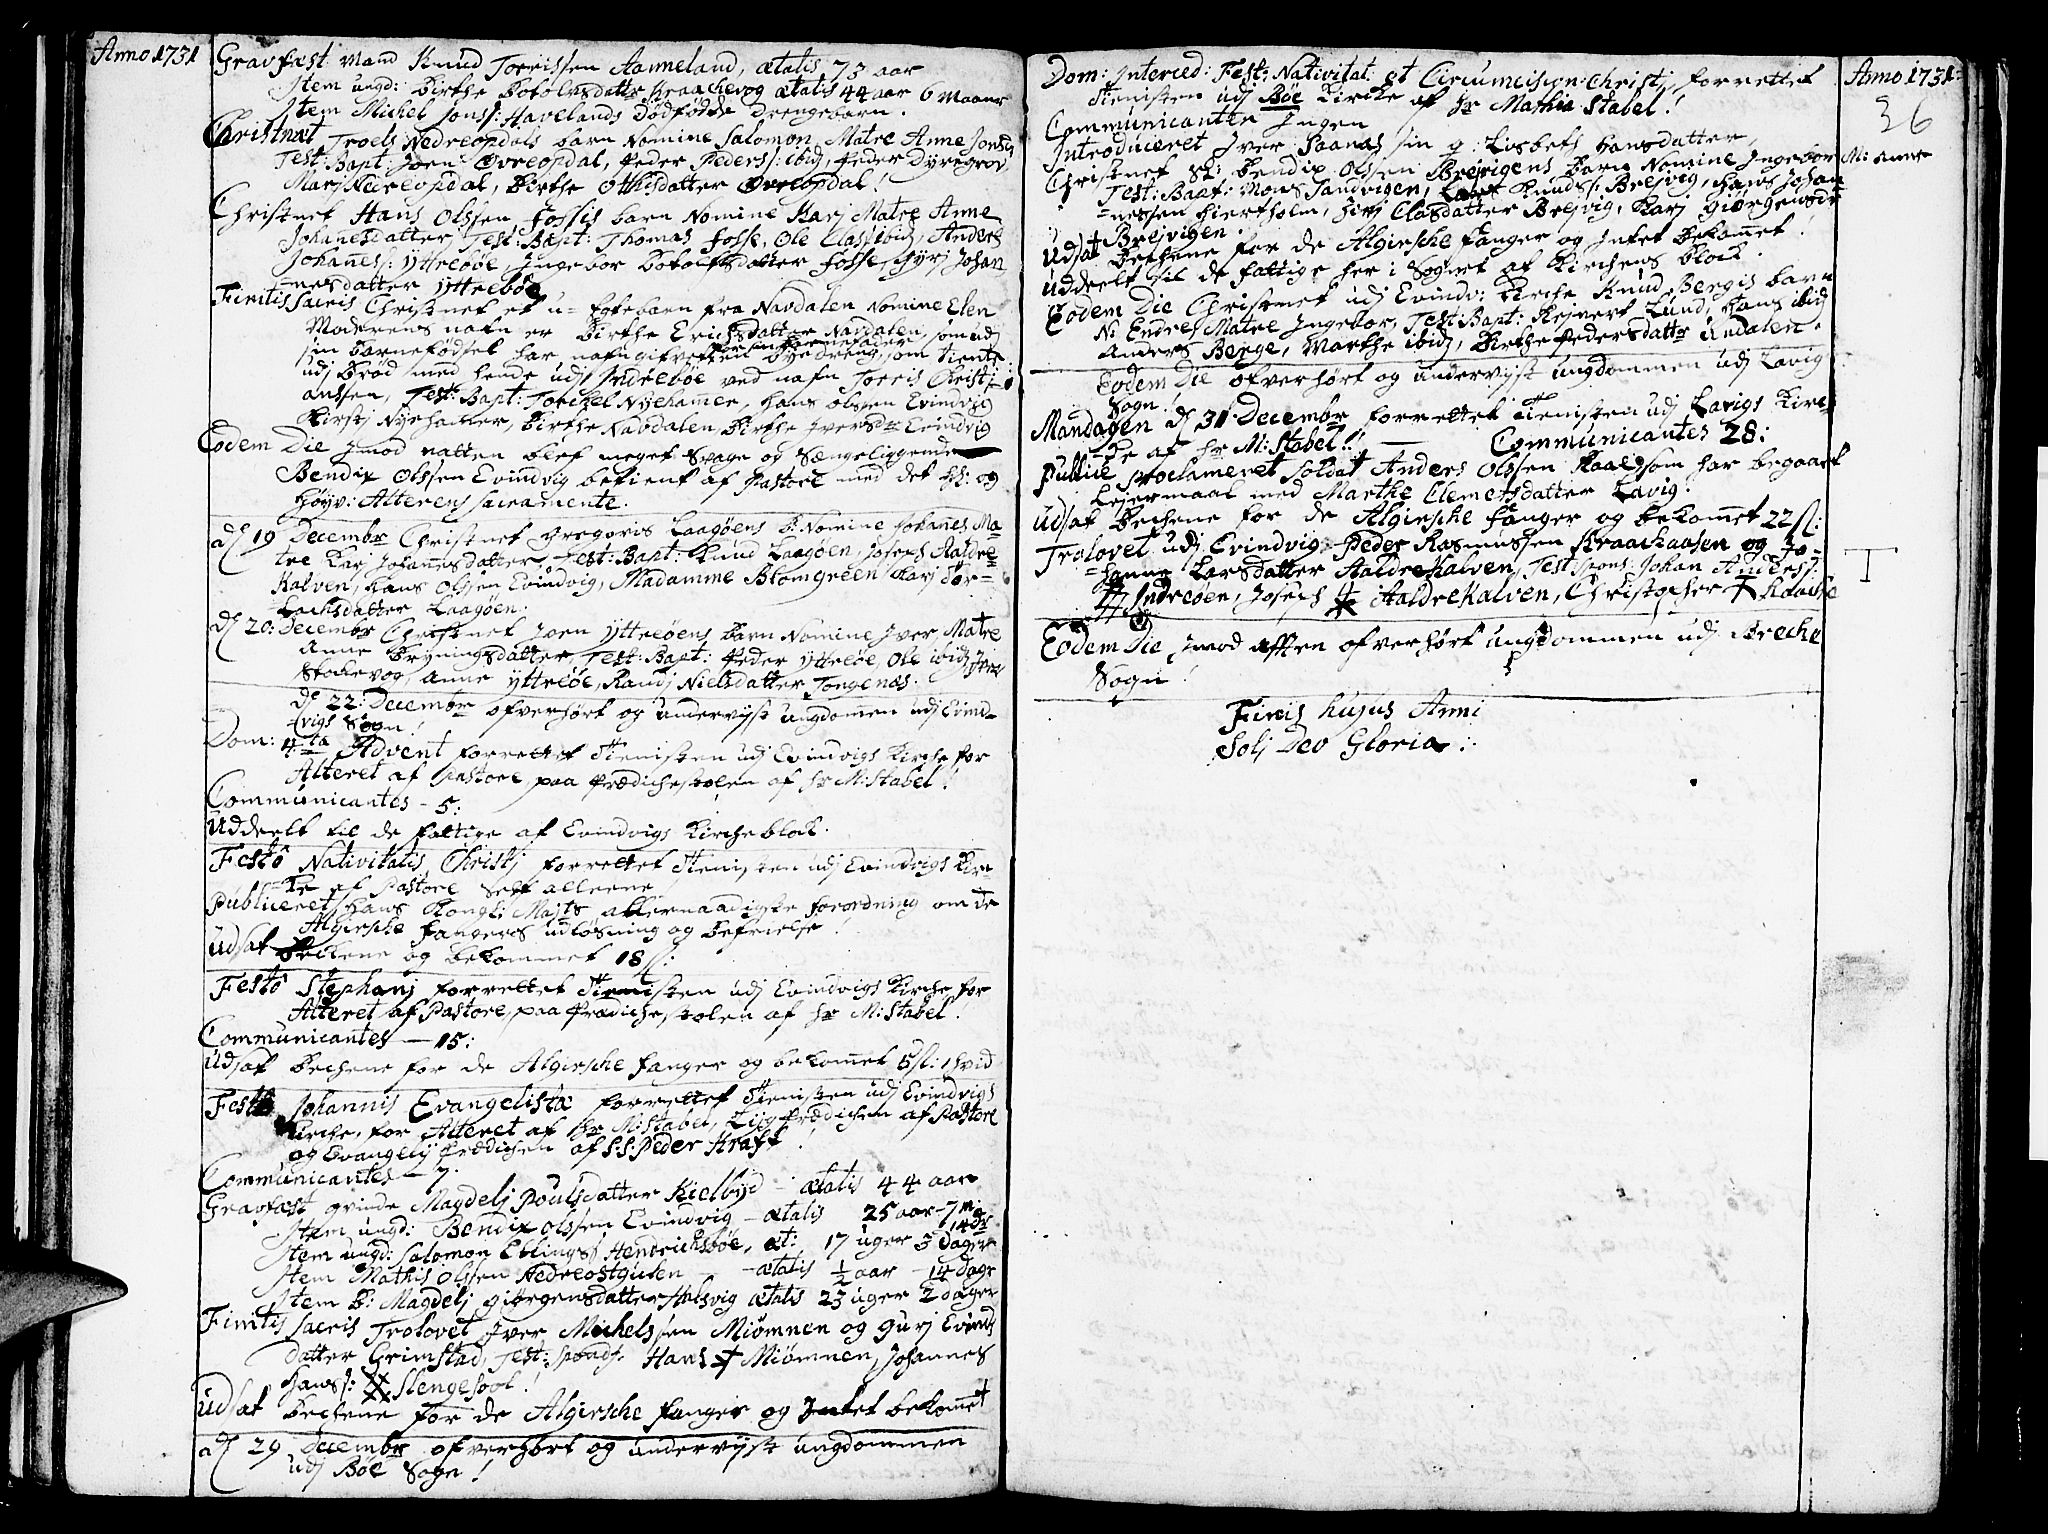 Anno 1731
Gravfæst Mand Knud Torrissen Aameland, ætatis 73 aar
Item ungd: Birthe Botolfsdattr Kraachevog ætatis 44 aar 6 Maanr
Item Michel Jonss: Havelands Dödfödde Drengebarn.
Christnæt Troels Nedreopdals barn Nomine Salomon, Matre Anne Jonsdr
Test: Bapt: Joen Övreopdal, Peder Pederss: ibid, Peder Dyregrov
Marj Nedreopdal, Birthe Otthisdatter Övreopdal!
Christnet Hans Olssen Fossis barn Nomine Karj Matre Anne
Johanesdatter, Test: Bapt: Thomas Fosse, Ole Classibid, Anders
Johaness: Yttreöe, Ingebor Botolfsdatter Fosse, Gyrj Johan
nesdatter Yttreböe
Finitis Sacris Christnet et u=Egtebarn fra Navdalen Nomine Elen
Moderens nafn er Birthe Erichsdatter Navdalen, som udj
sin Barnefödsel har nafngifvet sin Barnefader en Byedreng, som tiente
udj Bröd med hende udj Indreböe ved nafn Torris Christj
anssen, Test: Bapt: Torchel Nyehamer, Hans olssen Evindvig
Kirstj Nyehamer, Birthe Navdalen, Birthe Iversdr Evindvig
Eodem Die Imod natten blef meget Svage og Sængeliggende
Bendix Olssen Evindvig betient af Pastore med det H: og
Höyv: Alterens Sacramente.
d 19 Decembr Christnet Gregoris Laagöens B: Nomine Johanes Ma-
tre Karj Johanesdatter, Test: Bapt: Knud Laagöen, Joseph Aaldre
Kalven, Hans Olssen Evindvig, Madamme Blomgreen Karj Tör-
Lachsdatter Laagöen.
d 20: Decembr Christnet Joen Yttreöens Barn Nomine Iver, Matre
Anne Bryningsdatter, Test: Bapt: Peder Yttreöe, Ole ibid
Skallevog, Anne Yttreöe, Randj Nielsdatter Tongenæs.
d 22: Decembr ofverhört og undervyst ungdomen udj Evind-
vigs Sogn!
Dom: 4ta Advent forrettet Tienisten udj Evindvigs Kirche for
Alteret af Pastore, paa Prædichestolen af Hr M: Stabel!
Communicantes - 5:
Uddeelt til de fattige af Evindvigs Kircheblok.
Festô Nativitatis Christj forrettet Tienisten udj Evindvigs Kir-
ke af Pastore Self alleene
Publiceret Hans Kongl: Majts allernaadigste forordning om de
Algirsche fangers udlösning og Befrielse!
Udsat Beckene og bekommet 18 ß:
Festô Stephanj forrettet Tienisten udj Evindvigs Kirche for
Alteret af Pastore, paa Prædichestolen af Hr M: Stabel!
Communicantes - 15:
Udsat Bechene for de Algirsche fanger og bekomet 5 ß: 1 hvid
Festô Johannis Evangelistæ forrettet Tienisten udj Evindvigs
Kirche, for Alteret af Hr M: Stabel, Liigprædichen af Pastore
og Evangelij Prædichen af S:S: Peder Kraft!
Communicantes - 7.
Gravfæst qvinde Magdelj Poulsdatter Kielbyd - ætatis 44 aar
Item ungd: Bendix Olssen Evindvig - ætatis 25 aar - 7 M 14 dr
Item ungd: Salomon Ellingss Hendrichsböe, æt: 17 uger 3 dager
Item Mathis Olssen Nedreostgulen - ætatis 1/2 aar - 14 dagr
Item B: Magdelj Giörgensdatter Halsvig ætatis 23 uger 2 dager
Finitis Sacris Trolovet Iver Michelssen Miömnen og Gurj Evinds
datter Grimstad, Test: Spons: Hans Miömnen, Johannes
Hanss: Slengesool!
Udsat Bechene for de Algirsche fanger og Intet bekomet
d 29 Decembr ofverhört og undervyst ungdommen
udj Böe Sogn!
Dom: Interced: Fest: Nativitat: et Circumcision: Christj forrettet
Tienisten udj Böe Kirche af Hr Mathia Stabel!
Communicanten Ingen
Introduceret Iver Saanæs sin q: Lisbeth Hansdatter,
Christnet Sl: Bendix Olssen Brejvigens Barn Nomine Ingebor M: Anne
Test: Bapt: Mons Sandvigen, Knudss: Brejvig, Hans Johan
nessen Hiertholm, Clasdatter Brejvig, Karj Giörgensdr
Brejvigen.
Udsat Bechene for de Algirsche fanger og Intet Bekomet!
Uddeelt til de fattige her i Sognet af Kirchens Block.
Eodem Die Christnet udj Evindv: Kirche Knud Bergis barn
N: Endre, Matre Ingebor, Test: Bapt: Rejnert Lund, Hans ibid
Anders Berge, Marthe ibid, Birthe Pedersdattr Andalen.
Eodem Die ofverhört og undervyst ungdommen udj Lavig
Sogn!
Mandagen d 31. Decembr forrettet Tienisten udj Lavigs Kir-
ke af Hr M: Stabel!! - Communicantes 28:
Publice Proclameret Soldat Anders Olssen som har begaaet
Lejermaal med Marthe Clemetsdatter Lavig.
Udsat Bechene for de Algirsche fanger og bekomet 22 ß:
Trolovet udj Evindvig Peder Rasmussen Kraakaasen og Jo-
hanne Larsdatter Aaldrekalven, Test Spons: Johan Anderss:
Indreöen, Joseph Aaldrekalven, Christopher
Eodem Die Imod afften ofverhört ungdommen udj Breche
Sogn!
Finis hujus Anni
Solj Deo Gloria:
Anno 1731
36